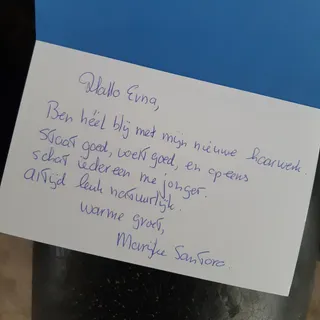 Hallo Erna,
Ben héél blij met mijn nieuwe haarwerk.
Staat goed, voelt goed, en opeens
schat iedereen me jonger.
Altijd leuk natuurlijk.
Warme groet,
Marijke Santoro.